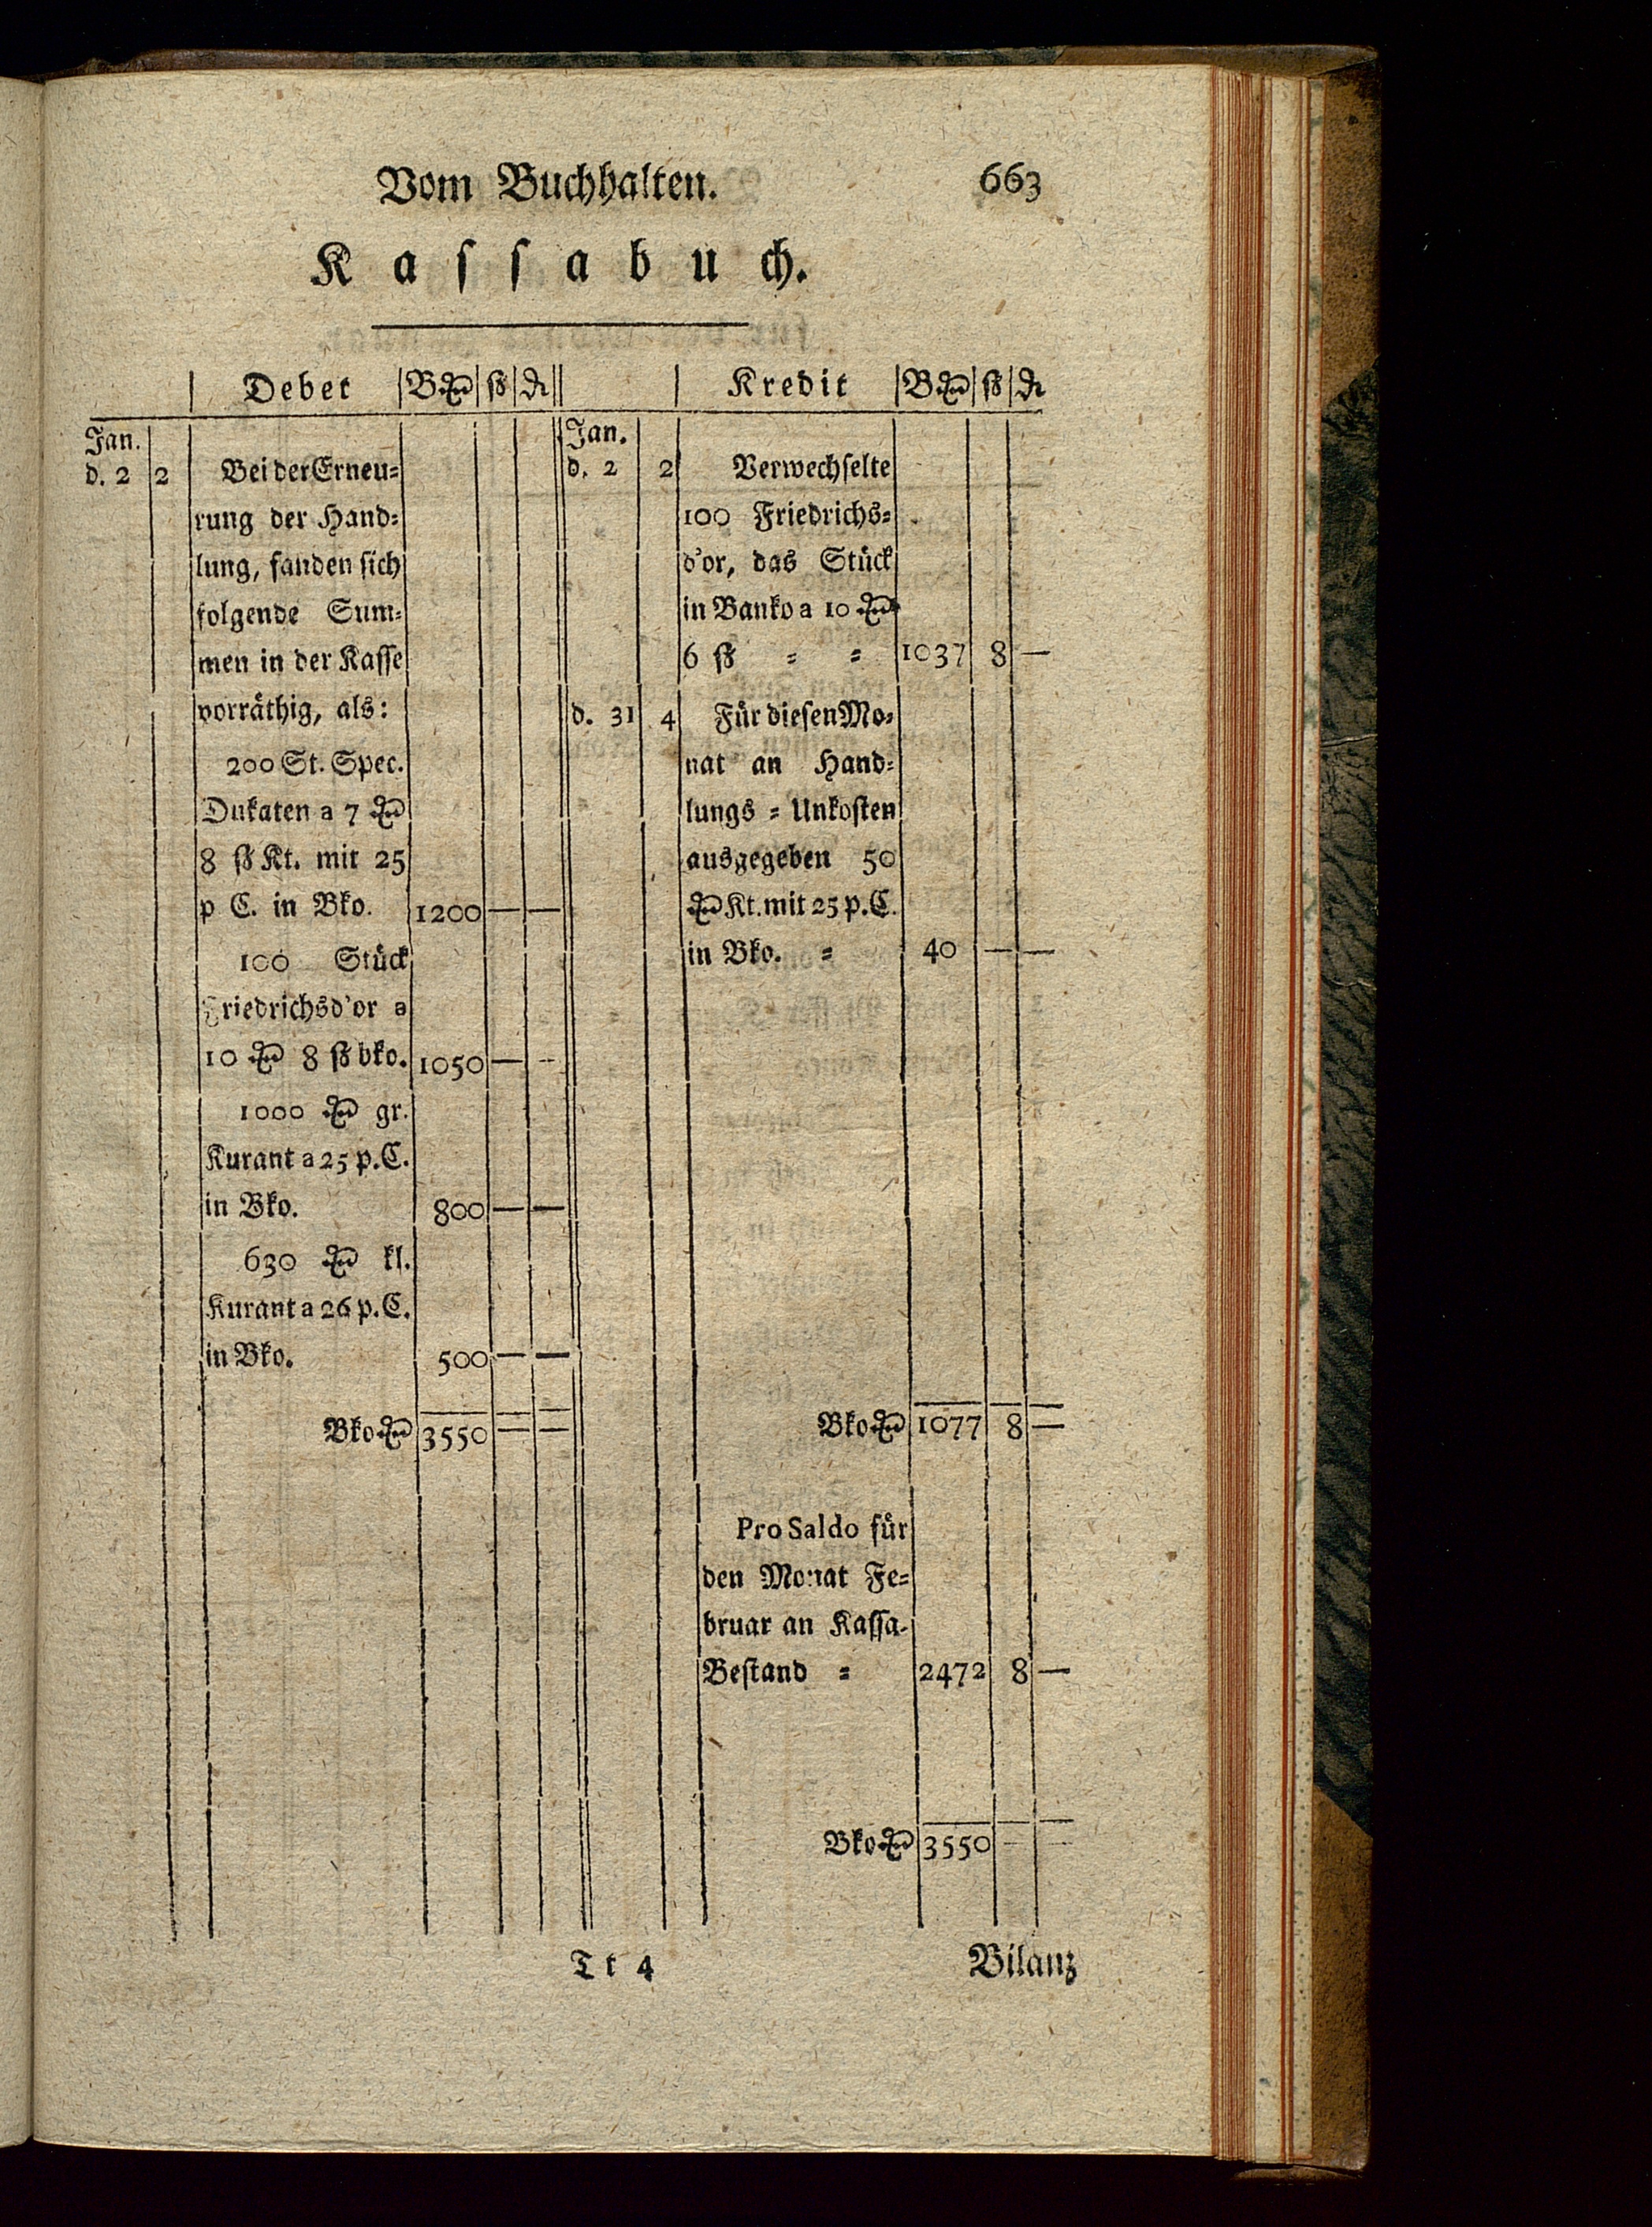 Vom Buchhalten. 663
Kaſſabuch.
Debet B.₰ ß ₰
Jan.
d. 2 2 Bei der Erneu⸗
rung der Hand⸗
lung, fanden ſich
folgende Sum⸗
men in der Kaſſe
vorräthig, als:
200 St. Spec.
Dukaten a 7 ₰
8 ß Kt. mit 25
p C. in Bko. 1200 — —
100 Stück
Friedrichsd'or a
10 ₰ 8 ß bko. 1050 — —
1000 ₰ gr.
Kurant a 25 p. C.
in Bko. 800 — —
630 ₰ kl.
Kurant a 26 p. C.
in Bko. 500 — —
Bko ₰ 3550 — —
Kredit B.₰ ß ₰
Jan.
d. 2 2 Verwechſelte
100 Friedrichs⸗
d'or, das Stück
in Banko a 10 ₰
6 ß ⸗ ⸗ 1037 8 —
d. 31 4 Für dieſen Mo⸗
nat an Hand⸗
lungs⸗Unkoſten
ausgegeben 50
₰ Kt. mit 25 p. C.
in Bko. ⸗ 40 — —
Bko ₰ 1077 8 —
Pro Saldo für
den Monat Fe⸗
bruar an Kaſſa-
Beſtand ⸗ 2472 8 —
Bko ₰ 3550 — —
Tt 4 Bilanz